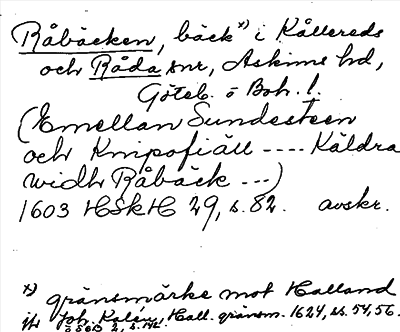 Råbäcken, bäck x) i Kållereds
och Råda snr, Askims hd,
Göteb. o Boh. l.
(Emellan Sundesteen
och Knipofiäll ---- Käldra
widh Råbäck ---)
1603 HSkH 29, s. 82. avskr.
x) gränsmärke mot Halland
jfr Joh. Kalén, Hall. gränsm. 1624, ss. 54, 56.